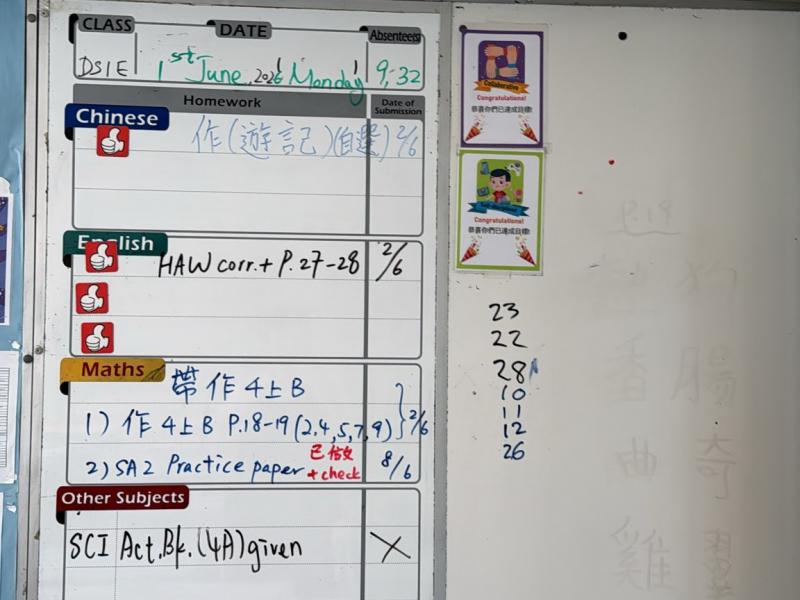 CLASS DATE Absentees
DS1E 1st June, 2026 Monday 9, 32
Homework Date of Submission
Chinese
作(遊記)(自選) 2/6
English
HAW corr. + P.27-28 2/6
Maths
帶作4上B
1) 作4上B P.18-19 (2,4,5,7,9) 2/6
2) SA2 Practice paper + check 8/6
Other Subjects
SCI Act. Bk. (4A) given X
Collaborative
Congratulations!
恭喜你們已達成目標!
Congratulations!
恭喜你們已達成目標!
23
22
28
10
11
12
26
P.19
狗
香 腸
曲 奇
雞 翼